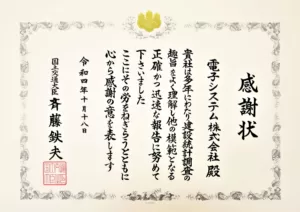 感謝状
電子システム株式会社 殿
貴社は多年にわたり建設統計調査の
趣旨をよく理解し他の模範となる
正確かつ迅速な報告に努めて
下さいました
ここにその労をねぎらうとともに
心から感謝の意を表します
令和四年十月十八日
国土交通大臣 斉藤鉄夫